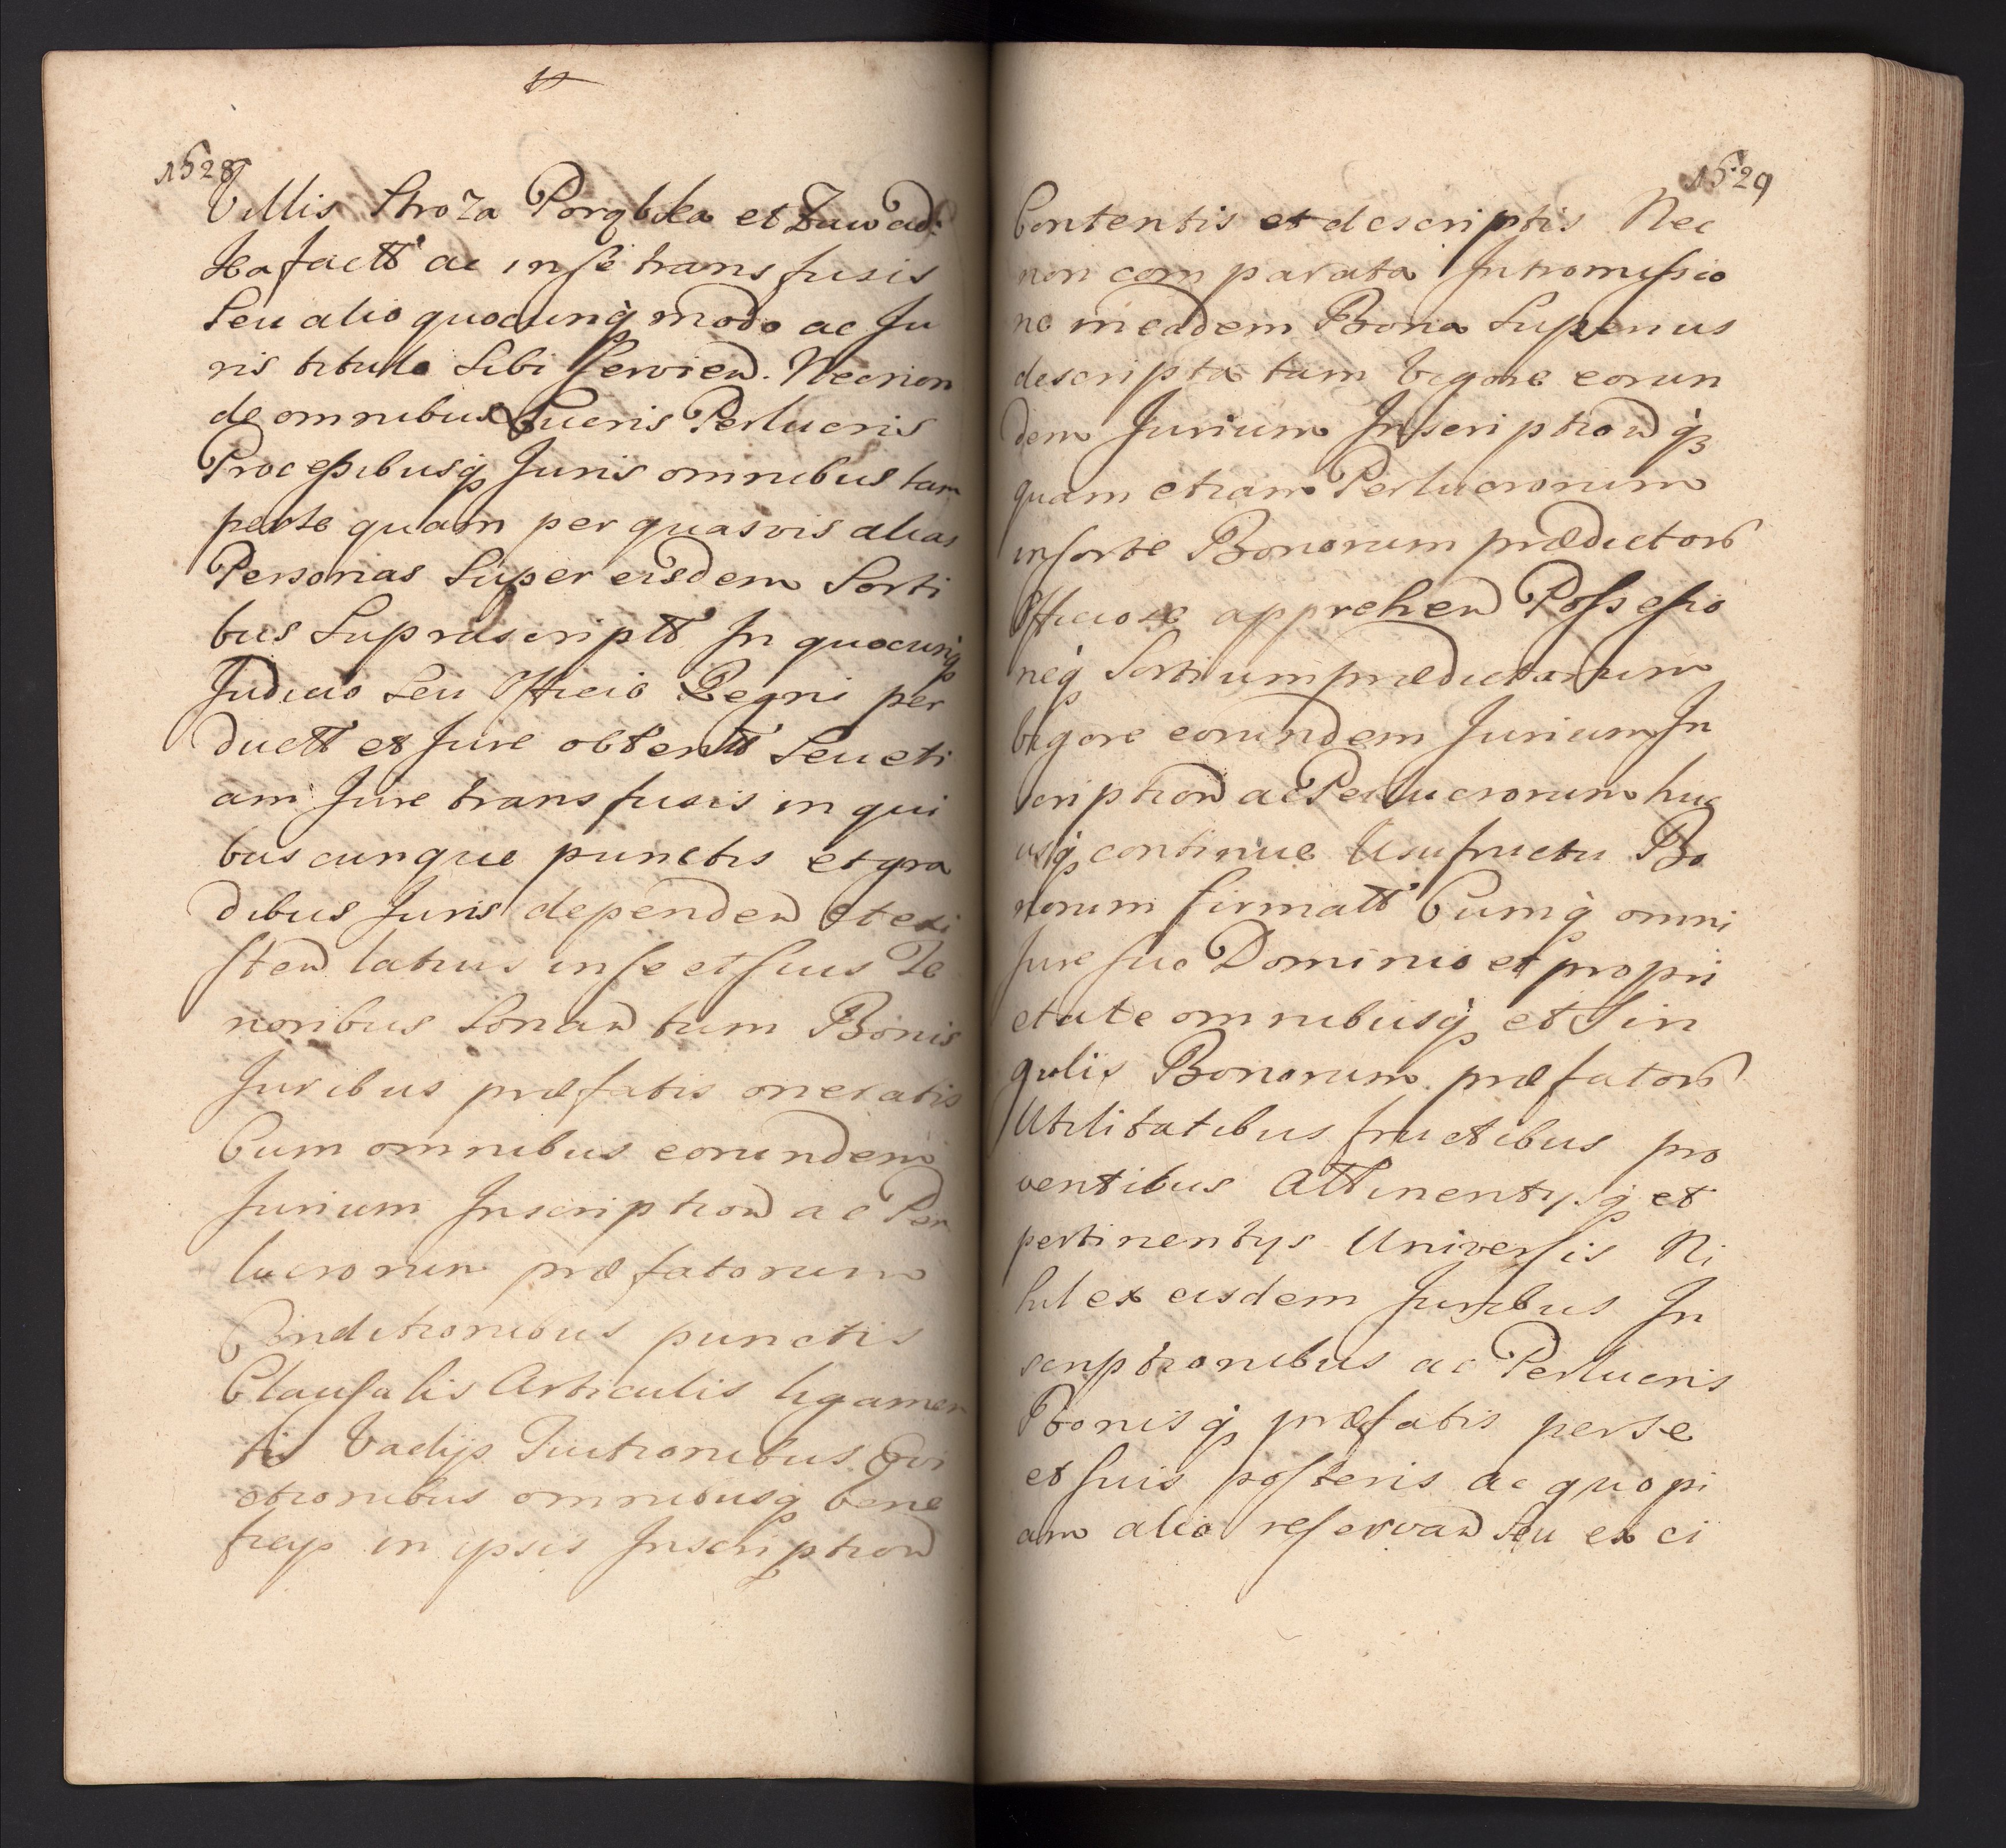 1528
Villis Stroza Porąbka et Zawad:
ka factt ac in se transfusis
Seu alio quocunq modo ac Ju
ris titulo Sibi Servien. Necnon
de omnibus Lucris Perlucris
Processibusq Juris omnibus tam
per se quam per quasvis alias
Personas Super eisdem Sorti
bus Suprascriptt In quocunq
Judicio Seu Officio Regni per
ductt et Jure obtentt Seu eti
am Jure transfusis in qui
buscunque punctis et gra
dibus Juris dependen et exi
sten latius in se et suis Te
noribus Sonan tum Bonis
Juribus præfatis oneratis
Cum omnibus eorundem
Jurium Inscription ac Per
lucrorum præfatorum
Conditionibus punctis
Clausulis Articulis ligamen
tis Vadijs Tuitionibus Evi
ctionibus omnibusq bene
ficijs in ipsis Inscription
1529
Contentis et descriptis Nec
non comparata Intromissio
ne in eadem Bona Superius
descripta tam Vigore eorun
dem Jurium Inscription q
quam etiam Perlucrorum
in sorte Bonorum prædictor
Officiose apprehen Possessio
neq Sortium prædictarum
Vigore eorundem Jurium In
scription ac Perlucrorum huc
usq continue Usufructu Bo
norum firmatt Cumq omni
Jure suo Dominio et propri
etate omnibusq et Sin
gulis Bonorum præfator
Utilitatibus fructibus pro
ventibus Attinentysq et
pertinentys Universis Ni
hil ex eisdem Juribus In
scriptionibus ac Perlucris
Bonisq præfatis per se
et suis posteris ac quopi
am alio reservan Seu exci